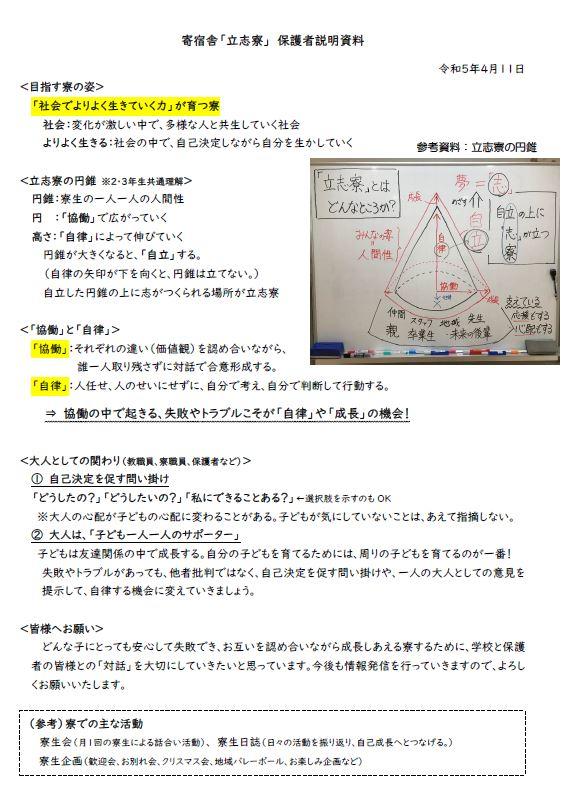 寄宿舎「立志寮」 保護者説明資料
令和5年4月11日
<目指す寮の姿>
「社会でよりよく生きていく力」が育つ寮
社会：変化が激しい中で、多様な人と共生していく社会
よりよく生きる：社会の中で、自己決定しながら自分を生かしていく
参考資料：立志寮の円錐
<立志寮の円錐 ※2・3年生共通理解>
円錐：寮生の一人一人の人間性
円 ：「協働」で広がっていく
高さ：「自律」によって伸びていく
円錐が大きくなると、「自立」する。
（自律の矢印が下を向くと、円錐は立てない。）
自立した円錐の上に志がつくられる場所が立志寮
「立志寮」とは
どんなところか？
夢＝「志」
めざす
成長
自立
みんなの姿
＝
人間性
自律
協働
成長
自立の上に
「志」が立つ
寮
仲間 スタッフ 地域 先生
親 卒業生 未来の後輩
支えている
応援もする
心配もする
<「協働」と「自律」>
「協働」：それぞれの違い（価値観）を認め合いながら、
誰一人取り残さずに対話で合意形成する。
「自律」：人任せ、人のせいにせずに、自分で考え、自分で判断して行動する。
⇒ 協働の中で起きる、失敗やトラブルこそが「自律」や「成長」の機会！
<大人としての関わり（教職員、寮職員、保護者など）>
① 自己決定を促す問い掛け
「どうしたの？」「どうしたいの？」「私にできることある？」←選択肢を示すのもOK
※大人の心配が子どもの心配に変わることがある。子どもが気にしていないことは、あえて指摘しない。
② 大人は、「子ども一人一人のサポーター」
子どもは友達関係の中で成長する。自分の子どもを育てるためには、周りの子どもを育てるのが一番！
失敗やトラブルがあっても、他者批判ではなく、自己決定を促す問い掛けや、一人の大人としての意見を
提示して、自律する機会に変えていきましょう。
<皆様へお願い>
どんな子にとっても安心して失敗でき、お互いを認め合いながら成長しあえる寮するために、学校と保護
者の皆様との「対話」を大切にしていきたいと思っています。今後も情報発信を行っていきますので、よろし
くお願いいたします。
（参考）寮での主な活動
寮生会（月1回の寮生による話合い活動）、 寮生日誌（日々の活動を振り返り、自己成長へとつなげる。）
寮生企画（歓迎会、お別れ会、クリスマス会、地域バレーボール、お楽しみ企画など）